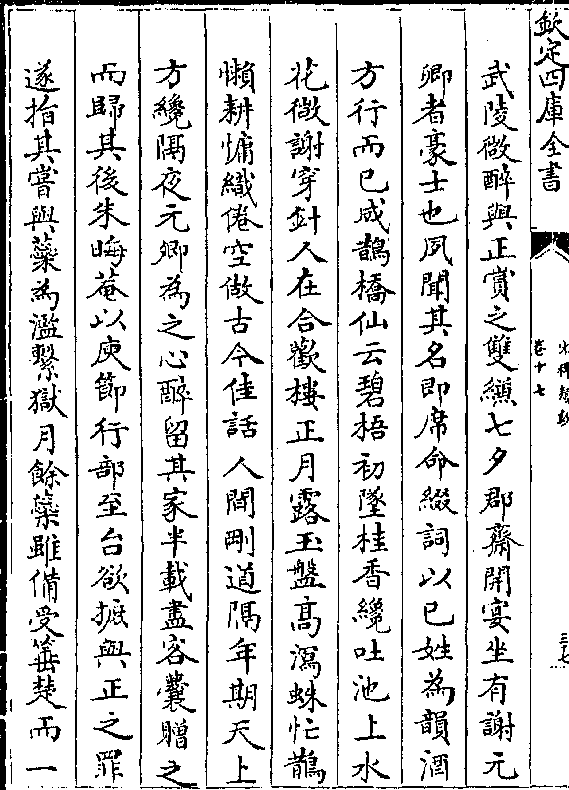 欽定四庫全書
卷十七
三七
武陵微醉與正賞之雙縑七夕郡齋開宴坐有謝元
卿者豪士也夙聞其名即席命綴詞以已姓為韻酒
方行而已成鵲橋仙云碧梧初墜桂香纔吐池上水
花微謝穿針人在合歡樓正月露玉盤高瀉蛛忙鵲
懶耕慵織倦空做古今佳話人間剛道隔年期天上
方纔隔夜元卿為之心醉留其家半載盡客囊贈之
而歸其後朱晦菴以庾節行部至台欲摭與正之罪
遂指其嘗與蘂為濫繫獄月餘蘂雖備受箠楚而一